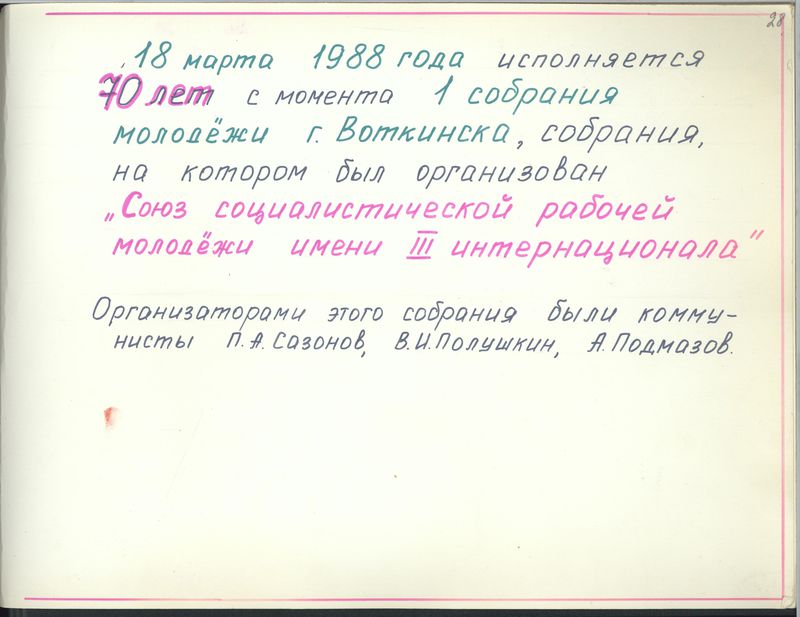 28
18 марта 1988 года исполняется
70 лет с момента 1 собрания
молодёжи г. Воткинска, собрания,
на котором был организован
„Союз социалистической рабочей
молодёжи имени III интернационала"
Организаторами этого собрания были комму-
нисты П.А.Сазонов, В.И.Полушкин, А.Подмазов.